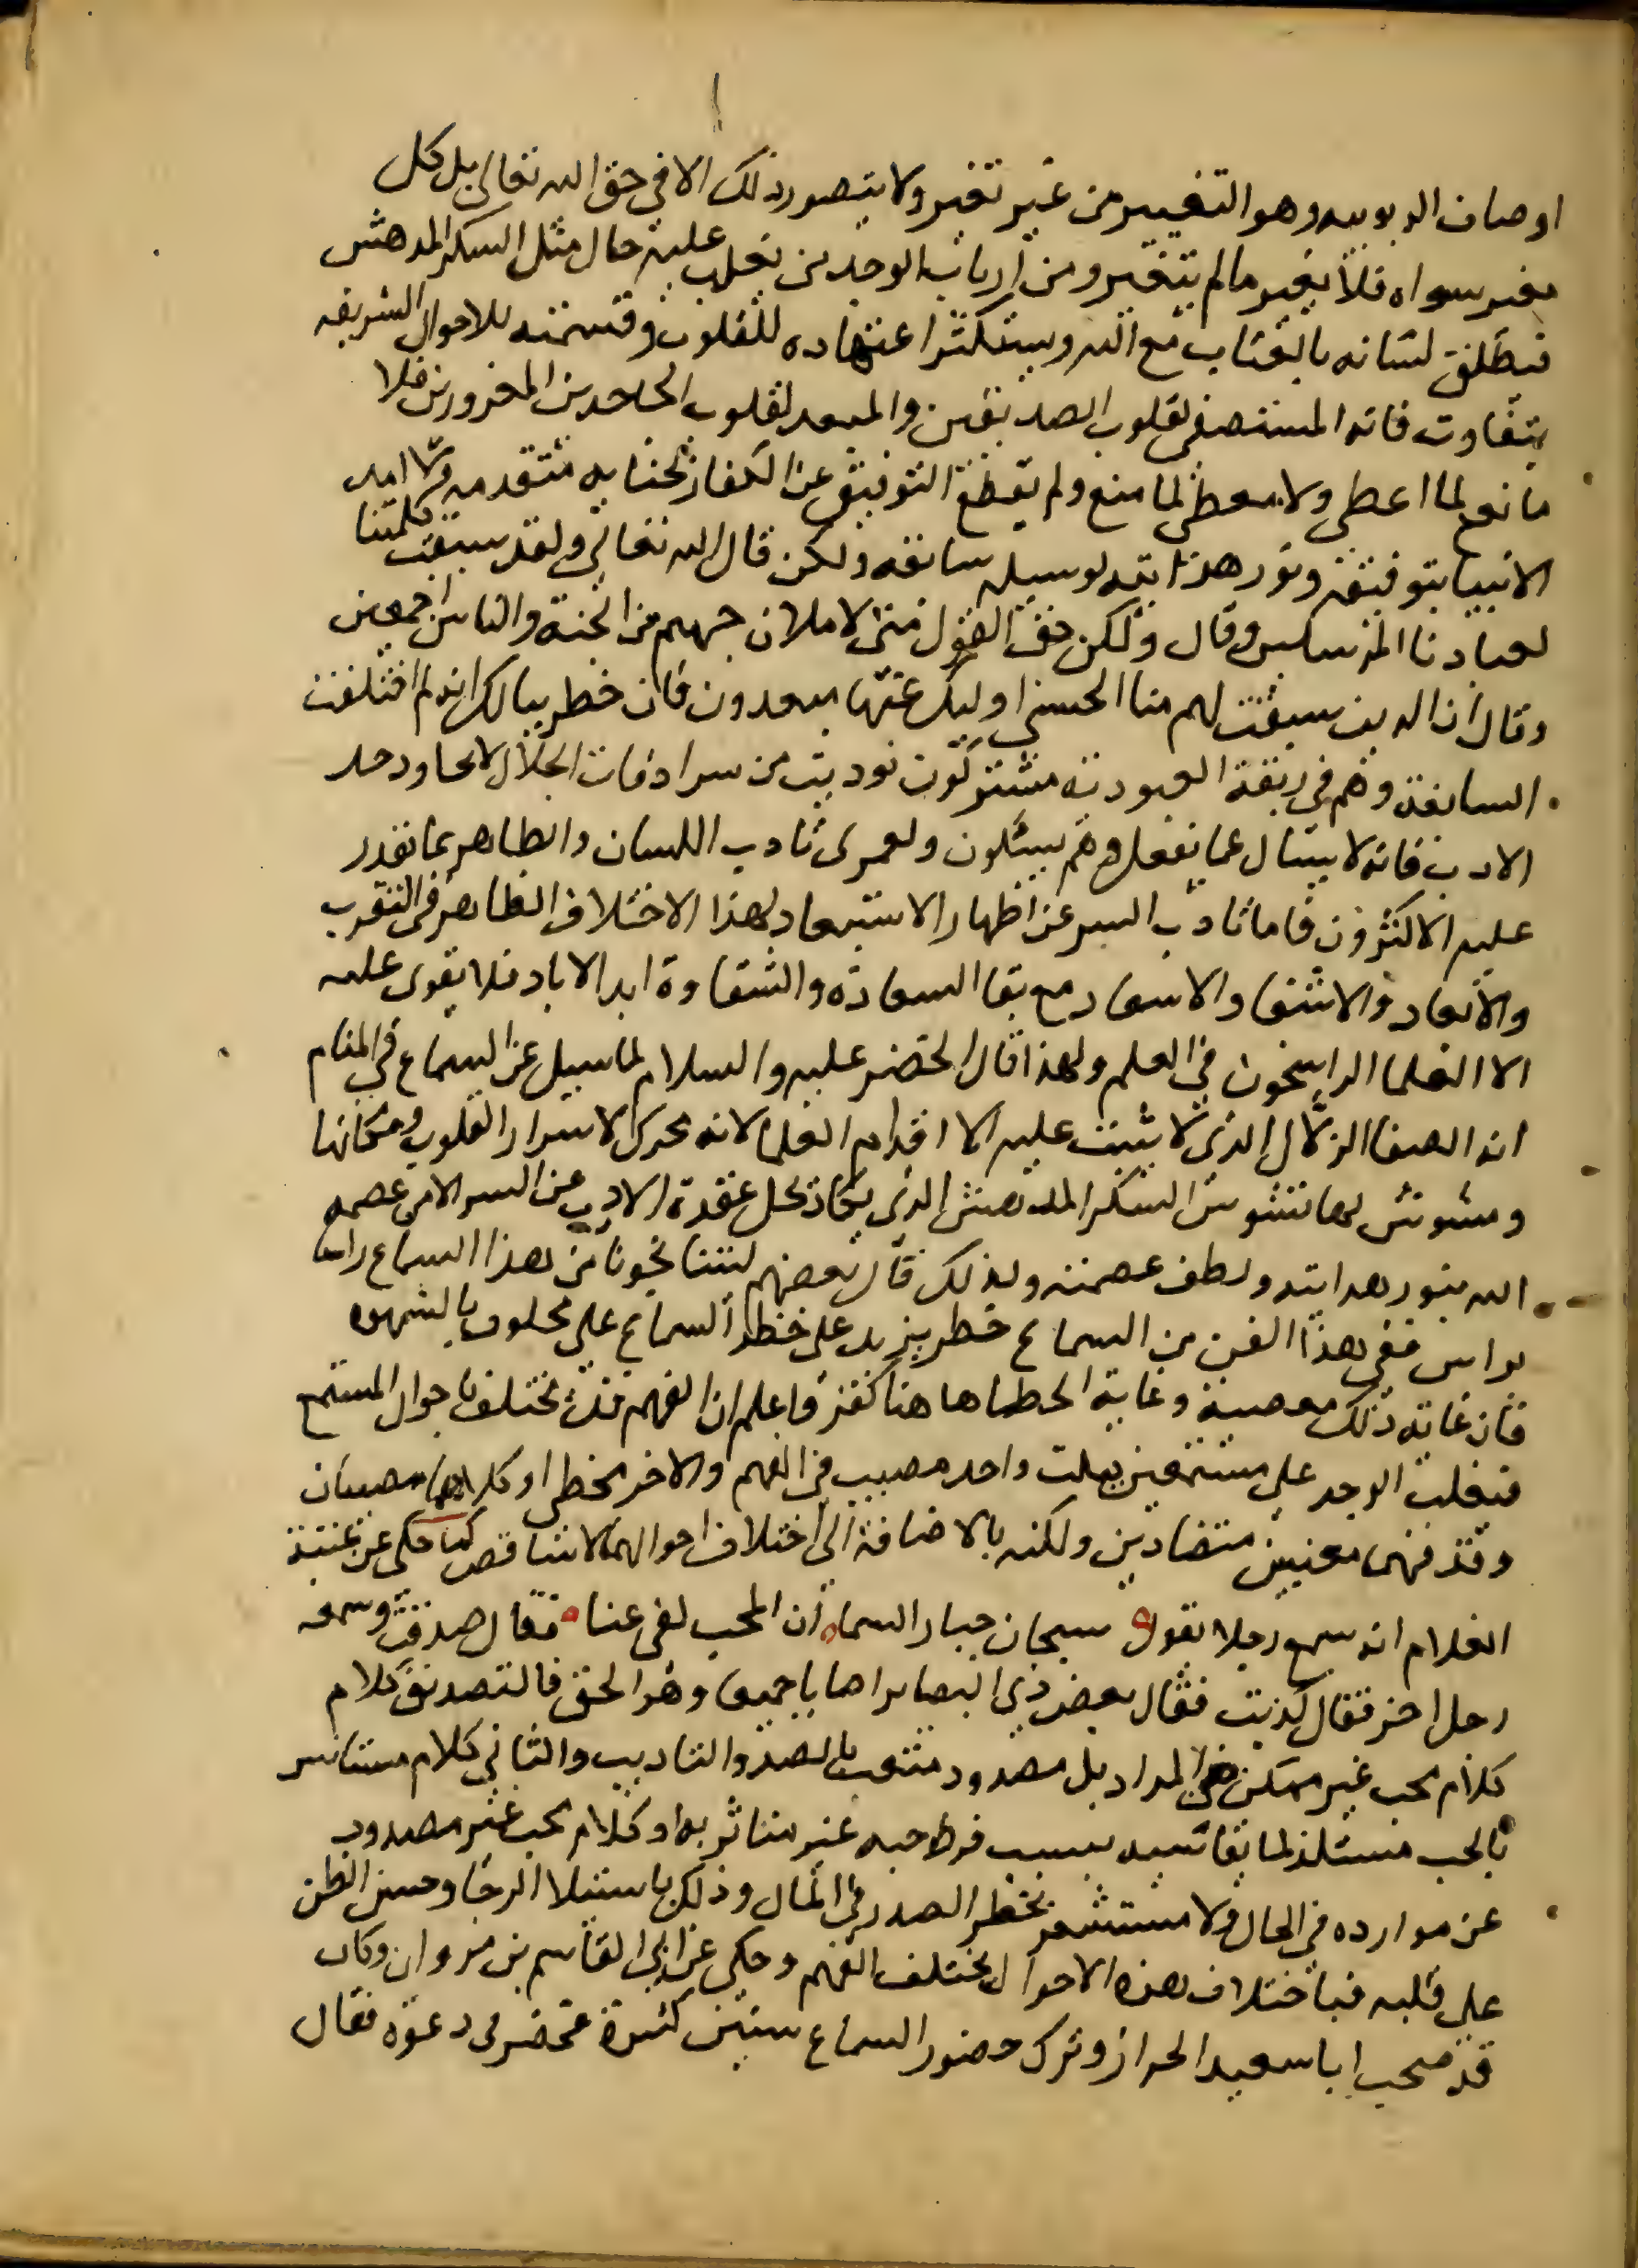 اوصاف الربوبيه وهو التغيير من غير تغير ولا يتصور ذلك الا في حق الله تعالى بل كل
مغير سواه فلا يغير ما لم يتغير ومن ارباب الوجد من يغلب عليه حال مثل السكر المدهش
فيطلق لسانه بالعتاب مع الله ويستكثر اعتهاده للقلوب وقسمته للاحوال الشريفه
بتفاوت فانه المستصفي لقلوب الصديقين والمبعد لقلوب الجاحدين المغرورين فلا
مانع لما اعطى ولا معطي لما منع ولم يقطع التوفيق عن الكفار لجنايه متقدمه ولا امد
الانبيا بتوفيقه ونور هدايته لوسيله سابقه ولكن قال الله تعالى ولقد سبقت كلمتنا
لعبادنا المرسلين وقال ولكن حق القول مني لاملان جهنم من الجنة والناس اجمعين
وقال ان الذين سبقت لهم منا الحسنى اوليك عنها مبعدون فان خطر ببالك انه لم اختلفت
السابقة وهم في ربقة العبودية مشتركون نوديت من سرادقات الجلال لا تجاوز حد
الادب فانه لا يسال عما يفعل وهم يسئلون ولعمري تادب اللسان والظاهر مما يقدر
عليه الاكثرون فاما تادب السر عن اظهار الاستبعاد لهذا الاختلاف الظاهر في التقرب
والابعاد والاشقا والاسعاد مع بقا السعادة والشقاوة ابد الاباد فلا يقوى عليه
الا العلما الراسخون في العلم ولهذا قال الخضر عليه والسلام لما سيل عن السماع في المنام
انه الصفا الزلال الذي لا يثبت عليه الا اقدام العلما لانه محرك لاسرار القلوب ومكامنها
ومشوش لها تشويش السكر المدهش الذي يكاد يحل عقدة الادب عن السر الا من عصمه
الله بنور هدايته ولطف عصمته ولذلك قال بعضهم ليتنا نجونا من هذا السماع راسا
براس ففي هذا الفن من السماع خطر يزيد على خطر السماع على محلوب بالشهوه
فان غاية ذلك معصية وغاية الخطا هاهنا كفر واعلم ان الفهم قد يختلف باحوال المستمع
فيغلب الوجد على مستمعين لبيت واحد مصيب في الفهم والاخر مخطي او كلاهما مصيبان
وقد فهما معنيين متضادين ولكنه بالاضافة الى اختلاف احوالهما لا يتناقض كما حكي عن عتبة
الغلام انه سمع رجلا يقول سبحان جبار السما ان المحب لفي عنا فقال صدقت وسمعه
رجل اخر فقال كذبت فقال بعض ذي البصاير اصابا جميعا وهو الحق فالتصديق كلام
كلام محب غير ممكن من المراد بل مصدود متعب بالصد والتاديب والثاني كلام مستانس
بالحب مستلذ لما يقاسيه بسبب فرط حبه غير متاثر به او كلام محب غير مصدود
عن موارده في الحال ولا مستشعر بخطر الصد في المال وذلك باستيلا الرجا وحسن الظن
على قلبه فباختلاف هذه الاحوال يختلف الفهم وحكي عن ابي القاسم بن مروان وكان
قد صحب ابا سعيد الخراز وترك حضور السماع سنين كثيرة فحضر في دعوة فقال